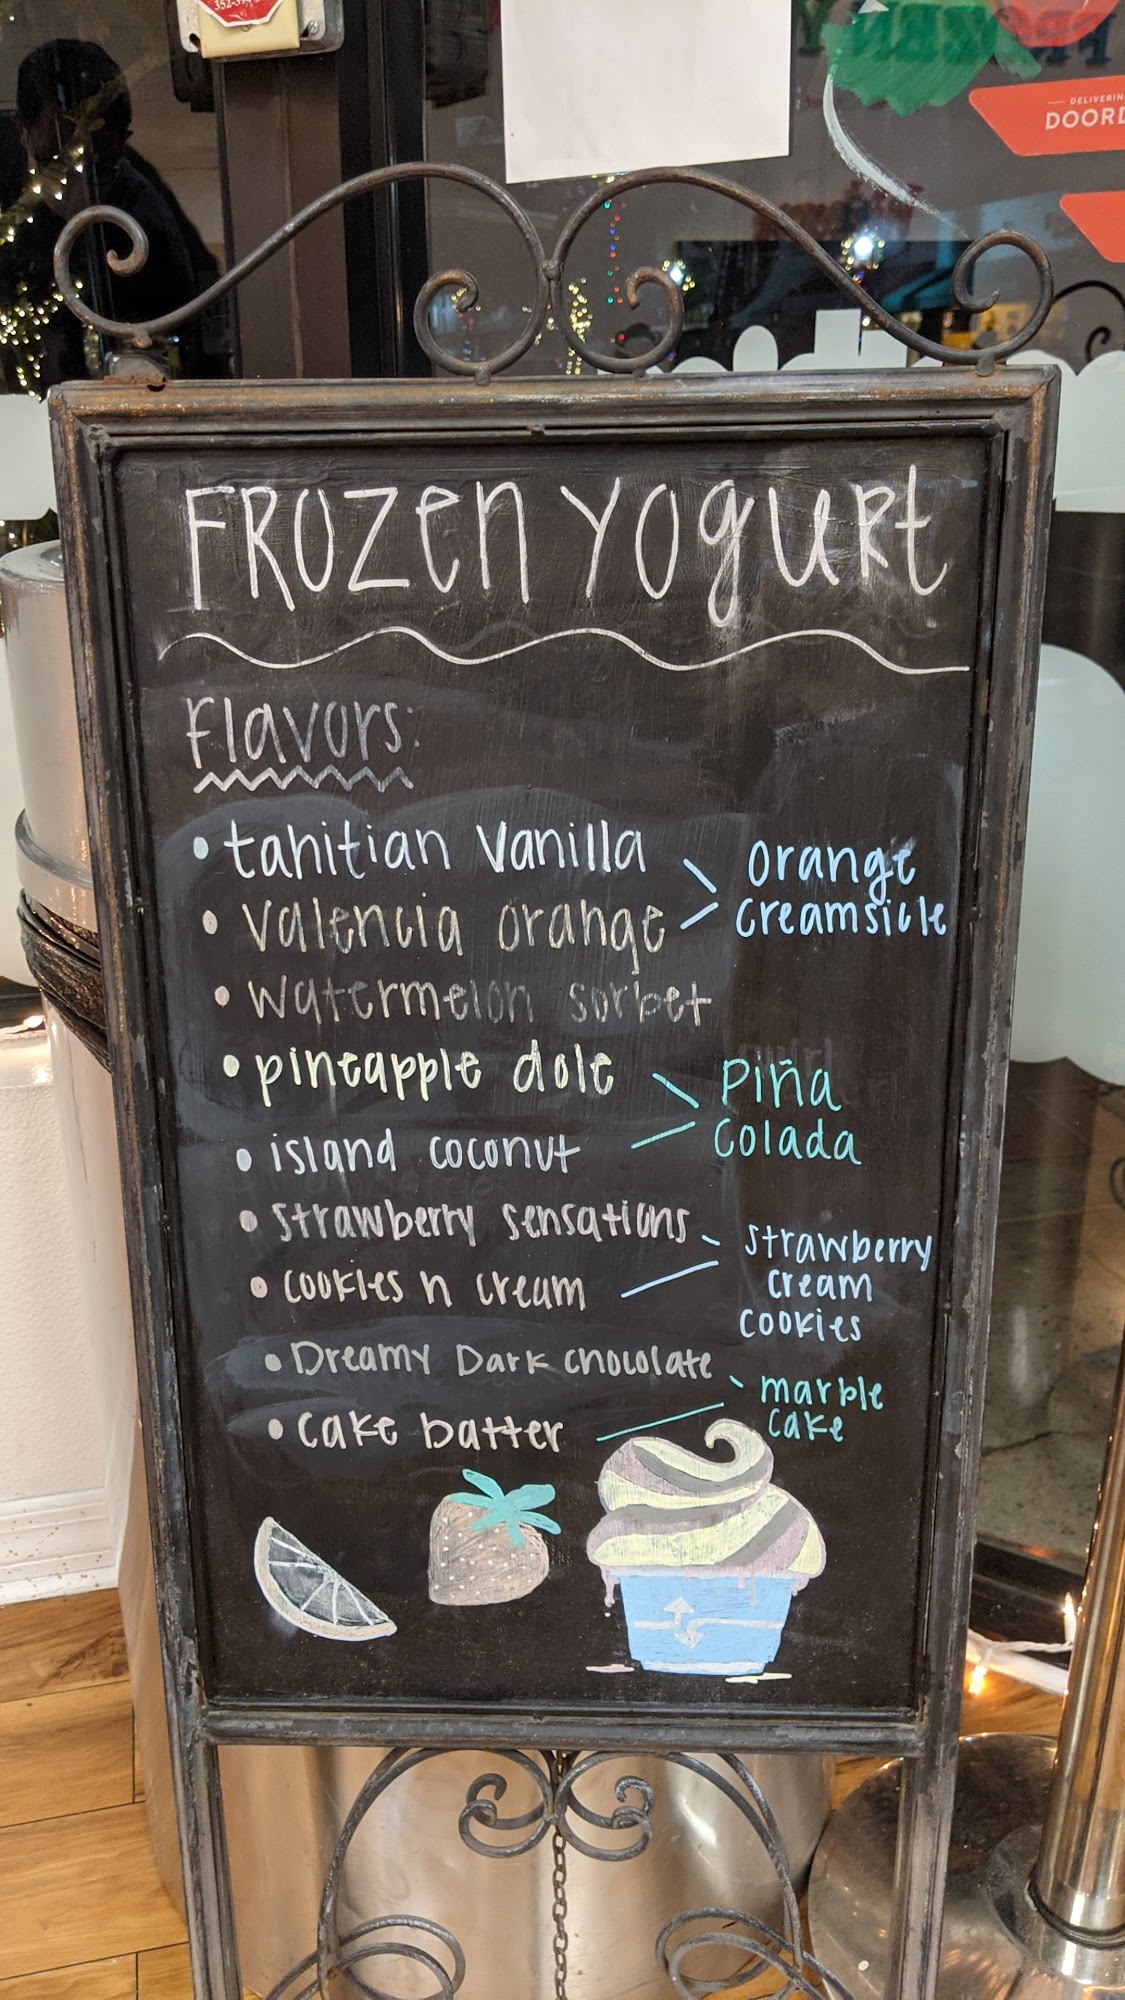 352-394
FROZEN
DELIVERING
DOORD
FROZEN YOGURT
Flavors:
• tahitian vanilla
orange
creamsicle
• valencia orange
• watermelon sorbet
• pineapple dole
Piña
Colada
• island coconut
• strawberry sensations
strawberry
cream
cookies
• cookies n cream
• Dreamy Dark chocolate
marble
cake
• cake batter